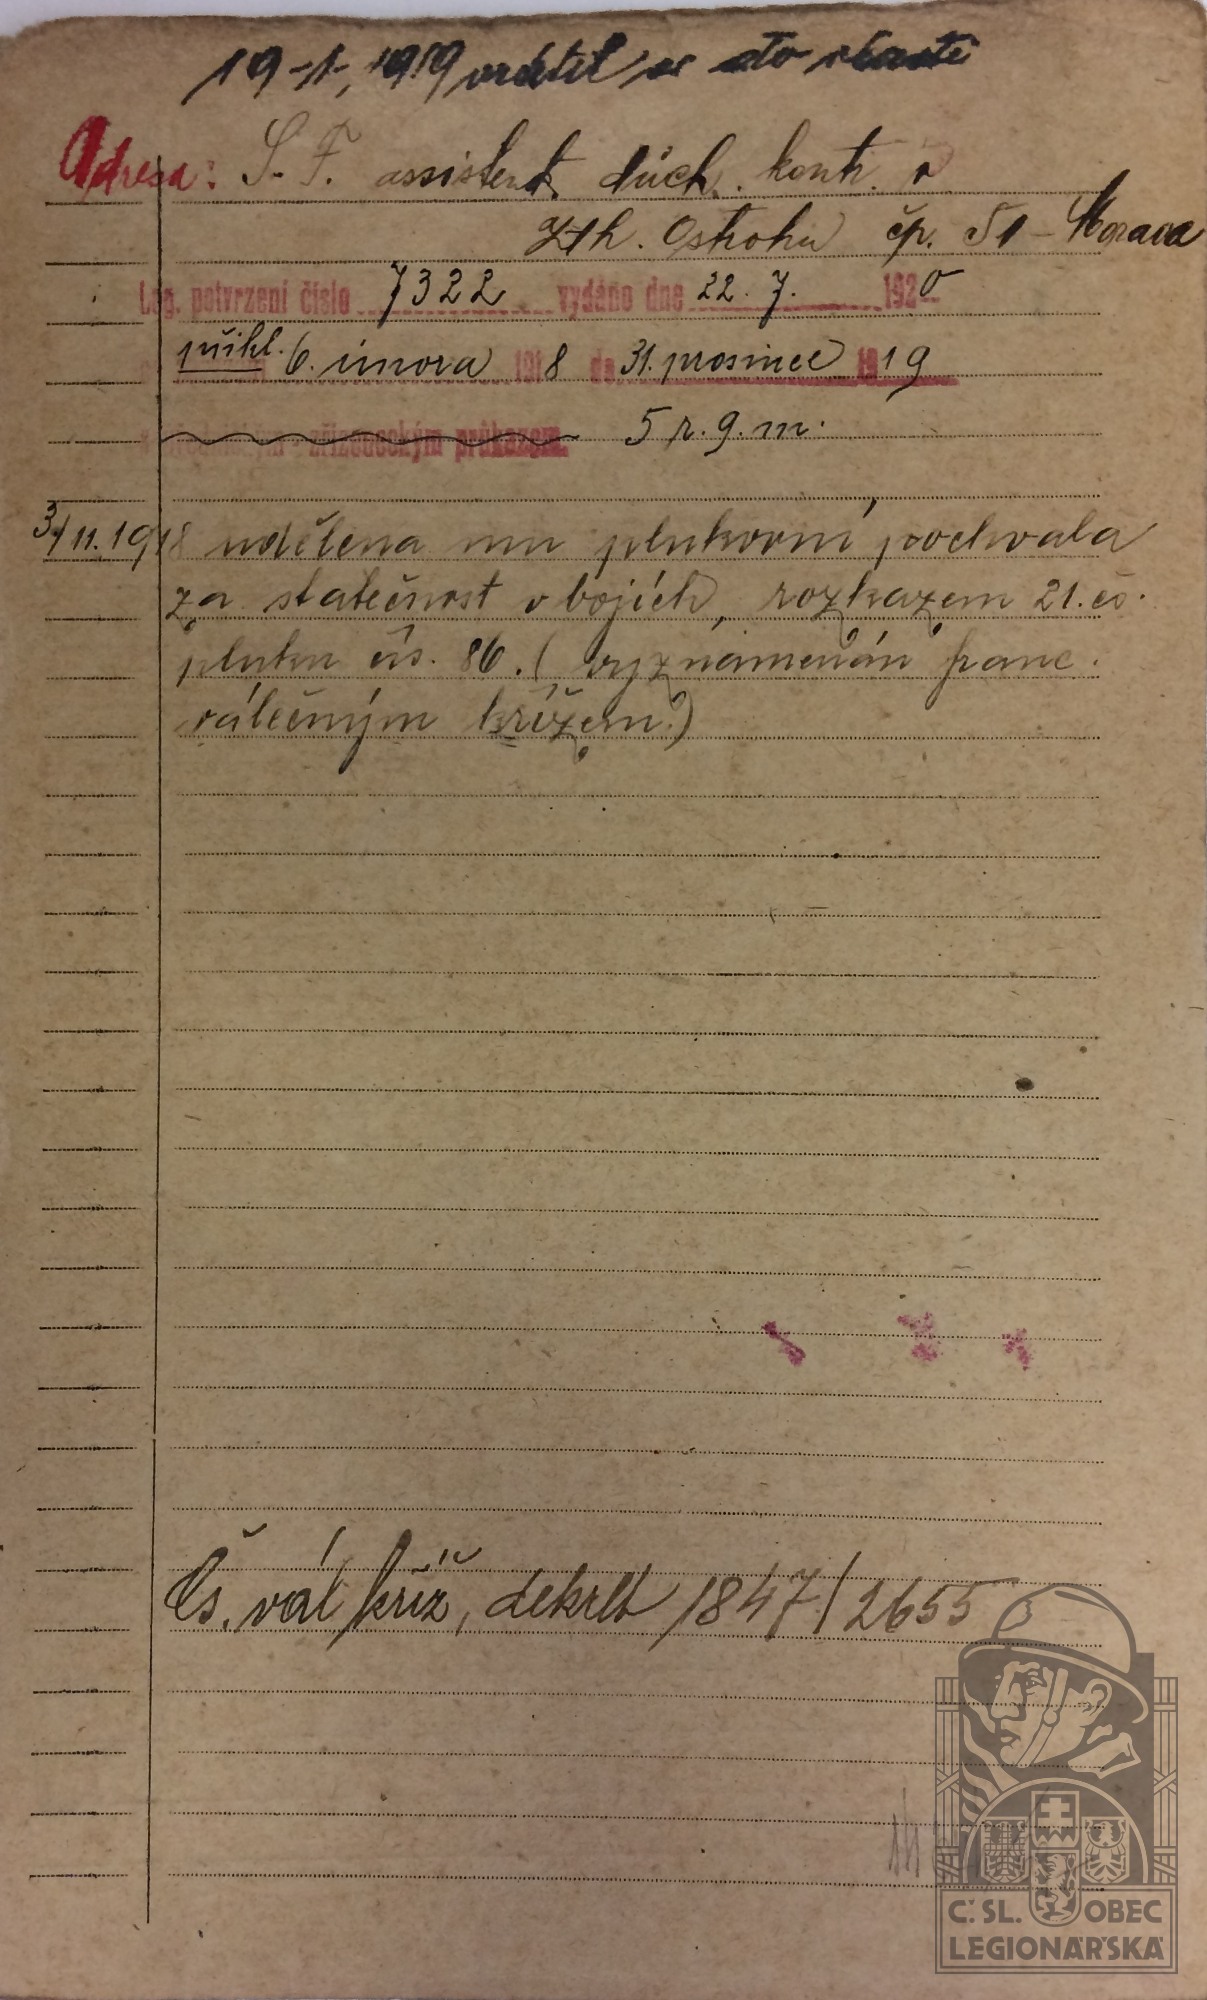 19-1-, 1919 vrátil se do vlasti
Adresa: S. F. assistent důch. kontr. v
Uh. Ostrohu čp. 51 - Morava
Leg. potvrzení číslo 7322 vydáno dne 22. 7. 1920
přihl. 6. února 1918 do 31. prosince 1919
zřízeneckým průkazem. 5 r. 9. m.
3/11. 1918 udělena mu plukovní pochvala
za statečnost v bojích, rozkazem 21. čs.
pluku čís. 86. (vyznamenán franc.
válečným křížem.)
Čs. vál kříž, dekret 1847/2655
Č. SL. OBEC
LEGIONÁŘSKÁ